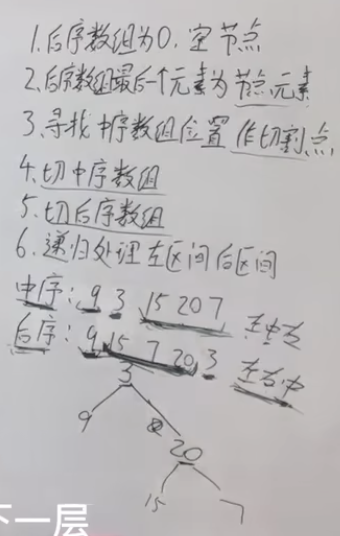 1.后序数组为0,空节点
2.后序数组最后一个元素为节点元素
3.寻找中序数组位置作切割点
4.切中序数组
5.切后序数组
6.递归处理左区间右区间
中序：9 3 15 20 7 左中右
后序：9 15 7 20 3 左右中
3
9 20
15 7
下一层